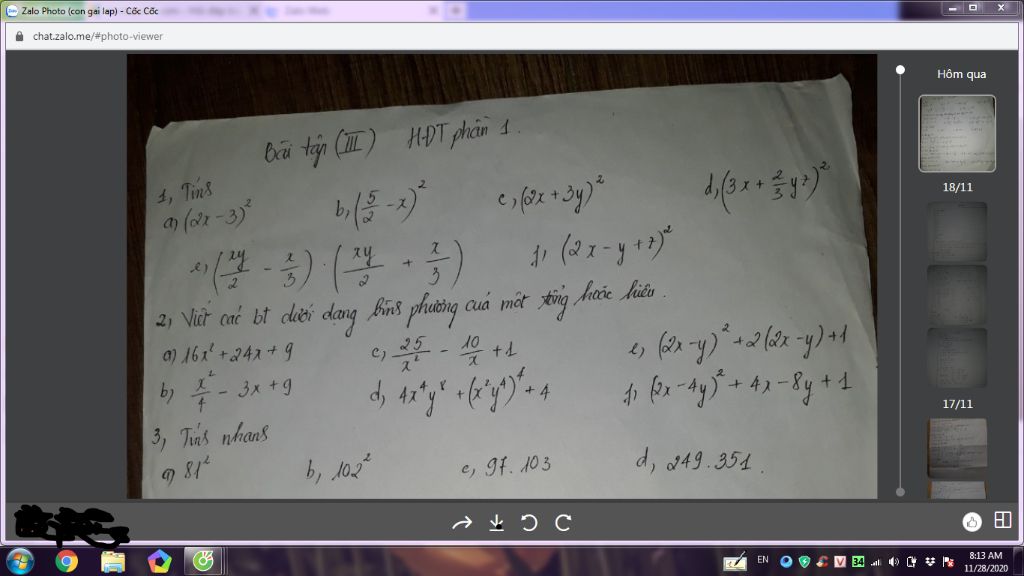 Zalo Photo (con gai lap) - Cốc Cốc
chat.zalo.me/#photo-viewer
Hôm qua
18/11
17/11
Bài tập (III) HĐT phần 1.
1, Tính
a) (2x-3)² b, (5/2 - x)² c, (2x+3y)² d, (3x + 2/3 yz)²
e, (xy/2 - x/3) . (xy/2 + x/3) f, (2x - y + z)²
2, Viết các bt dưới dạng bình phương của một tổng hoặc hiệu.
a) 16x² + 24x + 9 c, 25/x² - 10/x + 1 e, (2x-y)² + 2(2x-y) + 1
b) x²/4 - 3x + 9 d, 4x⁴y⁸ + (x²y⁴)⁴ + 4 f, (2x-4y)² + 4x - 8y + 1
3, Tính nhanh
a) 81² b, 102² c, 97.103 d, 249.351.
EN
34
8:13 AM
11/28/2020